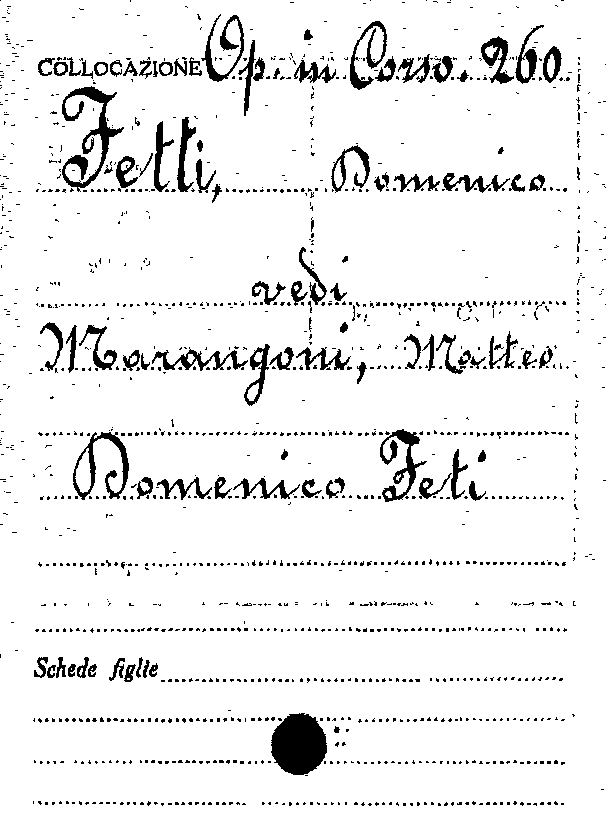 COLLOCAZIONE Op. in Corso. 260
Fetti, Domenico
vedi
Marangoni, Matteo
Domenico Feti
Schede figlie